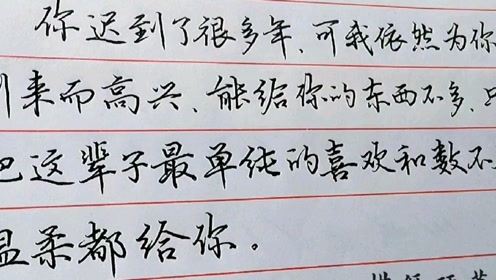 你迟到了很多年、可我依然为你
到来而高兴、能给你的东西不多、只
把这辈子最单纯的喜欢和数不
温柔都给你。